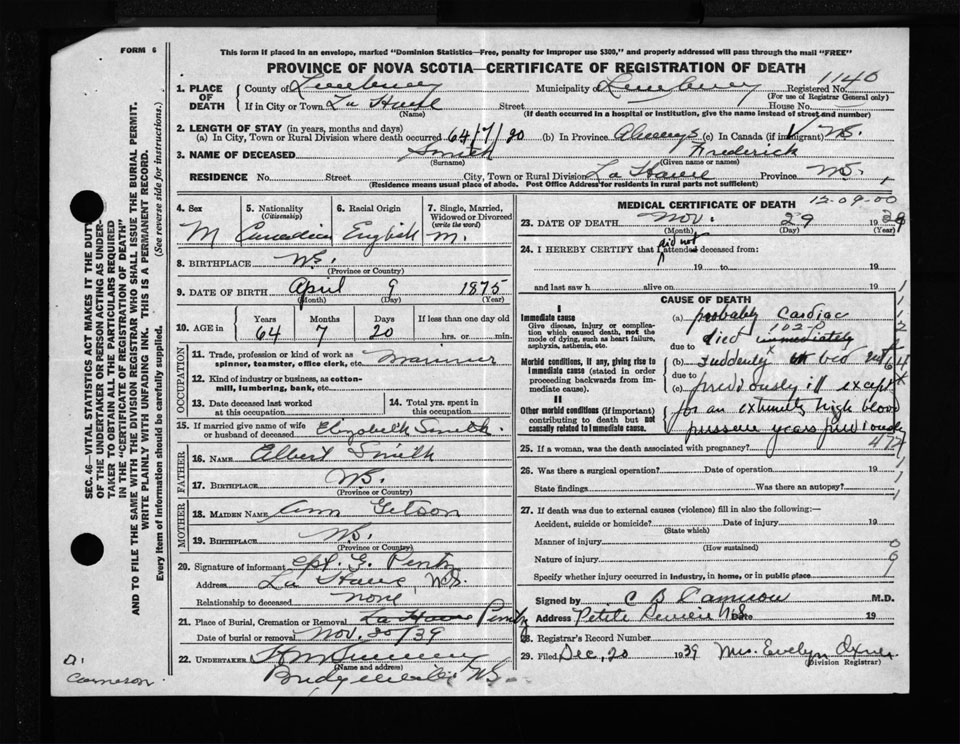 FORM 6
This form if placed in an envelope, marked "Dominion Statistics—Free, penalty for improper use $300," and properly addressed will pass through the mail "FREE"
PROVINCE OF NOVA SCOTIA—CERTIFICATE OF REGISTRATION OF DEATH
1140
1. PLACE OF DEATH County of Lunenburg Municipality of Lunenburg Registered No.
(For use of Registrar General only)
If in City or Town La Have Street House No.
(Name) (If death occurred in a hospital or institution, give the name instead of street and number)
2. LENGTH OF STAY (in years, months and days)
(a) In City, Town or Rural Division where death occurred 64/7/20 (b) In Province Always (c) In Canada (if immigrant) NS.
3. NAME OF DECEASED Smith Frederick
(Surname) (Given name or names)
RESIDENCE No. Street City, Town or Rural Division La Have Province NS.
(Residence means usual place of abode. Post Office Address for residents in rural parts not sufficient)
4. Sex 5. Nationality (Citizenship) 6. Racial Origin 7. Single, Married, Widowed or Divorced (write the word)
M Canadian English M.
8. BIRTHPLACE NS.
(Province or Country)
9. DATE OF BIRTH April 9 1875
(Month) (Day) (Year)
10. AGE in Years Months Days If less than one day old
64 7 20 hrs. or min.
OCCUPATION
11. Trade, profession or kind of work as spinner, teamster, office clerk, etc. Mariner
12. Kind of industry or business, as cotton-mill, lumbering, bank, etc.
13. Date deceased last worked at this occupation 14. Total yrs. spent in this occupation
15. If married give name of wife or husband of deceased Elizabeth Smith.
FATHER
16. NAME Albert Smith
17. BIRTHPLACE NS.
(Province or Country)
MOTHER
18. MAIDEN NAME Ann
19. BIRTHPLACE NS.
(Province or Country)
20. Signature of informant Cpt. G. Pentz
Address La Have, NS.
Relationship to deceased none
21. Place of Burial, Cremation or Removal La Have Pentz
Date of burial or removal Nov. 30/39
22. UNDERTAKER
(Name and address)
Bridgewater NS.
MEDICAL CERTIFICATE OF DEATH
12-09-00
23. DATE OF DEATH Nov. 29 19
(Month) (Day) (Year)
24. I HEREBY CERTIFY that I did not attended deceased from:
19 to 19
and last saw h alive on 19
CAUSE OF DEATH
I
Immediate cause
Give disease, injury or complication which caused death, not the mode of dying, such as heart failure, asphyxia, asthenia, etc.
(a) probably Cardiac
102-P
due to died immediately
Morbid conditions, if any, giving rise to immediate cause (stated in order proceeding backwards from immediate cause).
(b) suddenly in bed not
due to
(c) previously ill except
II
Other morbid conditions (if important) contributing to death but not causally related to immediate cause.
for an extremely high blood
pressure years previously
477
25. If a woman, was the death associated with pregnancy?
26. Was there a surgical operation? Date of operation 19
State findings Was there an autopsy?
27. If death was due to external causes (violence) fill in also the following:—
Accident, suicide or homicide? Date of injury 19
(State which)
Manner of injury
(How sustained)
Nature of injury
Specify whether injury occurred in industry, in home, or in public place
Signed by C B Cameron M.D.
Address Petite Riviere NS Date 19
28. Registrar's Record Number
29. Filed Dec. 20 1939 Mrs. Evelyn Oxner
(Division Registrar)
SEC. 46—VITAL STATISTICS ACT MAKES IT THE DUTY
OF THE UNDERTAKER OR PERSON ACTING AS UNDER-
TAKER TO OBTAIN ALL THE PARTICULARS REQUIRED
IN THE "CERTIFICATE OF REGISTRATION OF DEATH"
AND TO FILE THE SAME WITH THE DIVISION REGISTRAR WHO SHALL ISSUE THE BURIAL PERMIT.
WRITE PLAINLY WITH UNFADING INK. THIS IS A PERMANENT RECORD.
Every item of information should be carefully supplied. (See reverse side for instructions.)
Dr. Cameron.